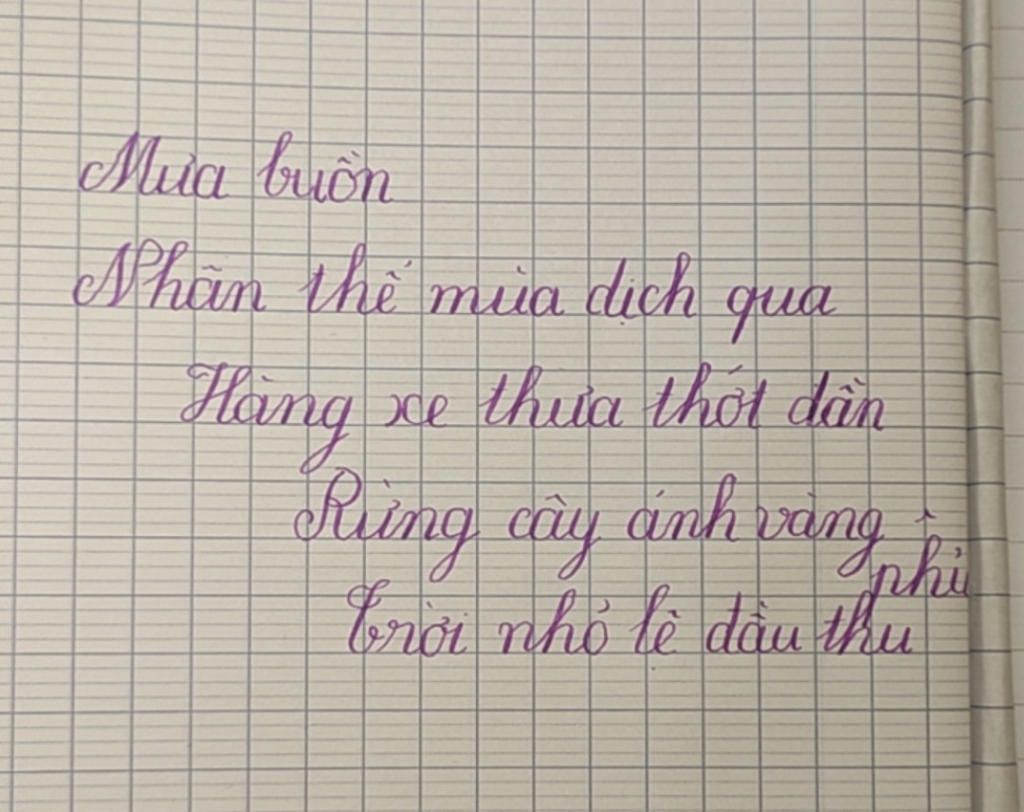 Mưa buồn
Nhân thế mùa dịch qua
Hàng xe thưa thớt dần
Rừng cây ánh vàng phủ
Trời nhỏ lệ đầu thu